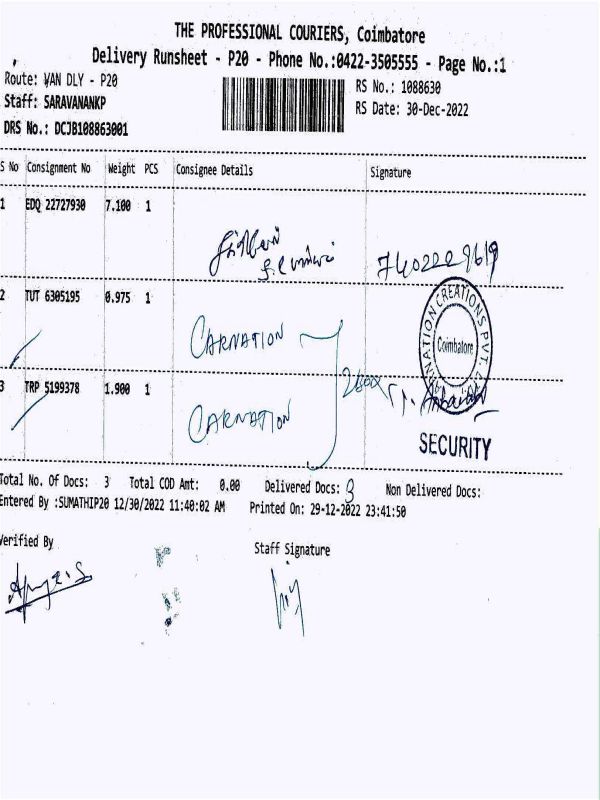 THE PROFESSIONAL COURIERS, Coimbatore
Delivery Runsheet - P20 - Phone No.:0422-3505555 - Page No.:1
Route: VAN DLY - P20
RS No.: 1088630
Staff: SARAVANANKP
RS Date: 30-Dec-2022
DRS No.: DCJB108863001
S No Consignment No Weight PCS Consignee Details Signature
1 EDQ 22727930 7.100 1
7402229619
2 TUT 6305195 0.975 1
CARNATION
CARNATION CREATIONS PVT. LTD.
Coimbatore
3 TRP 5199378 1.900 1
CARNATION
SECURITY
Total No. Of Docs: 3 Total COD Amt: 0.00 Delivered Docs: 3 Non Delivered Docs:
Entered By :SUMATHIP20 12/30/2022 11:40:02 AM Printed On: 29-12-2022 23:41:50
Verified By
Staff Signature